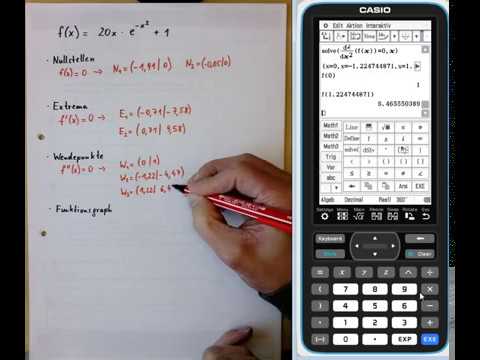 f(x) = 20x · e^(-x²) + 1
· Nullstellen
f(x) = 0 → N₁ = (-1,91 | 0) N₂ = (-0,05 | 0)
· Extrema
f'(x) = 0 → E₁ = (-0,71 | -7,58)
E₂ = (0,71 | 9,58)
· Wendepunkte
f''(x) = 0 → W₁ = (0 | 1)
W₂ = (-1,22 | -4,47)
W₃ = (1,22 | 6,4
· Funktionsgraph
CASIO
Edit Aktion Interaktiv
solve(d²/dx²(f(x))=0,x)
{x=0,x=-1.224744871,x=1.
f(0)
1
f(1.224744871)
6.465550389
Math1
Math2
Math3
Trig
Var
abc
Algeb Dezimal Reell 360°
Settings Menu Main Resize Rotate Screen
Keyboard
Shift
Clear
x y z ^ ÷
( 7 8 9 ×
) 4 5 6 −
, 1 2 3 +
(−) 0 . EXP EXE